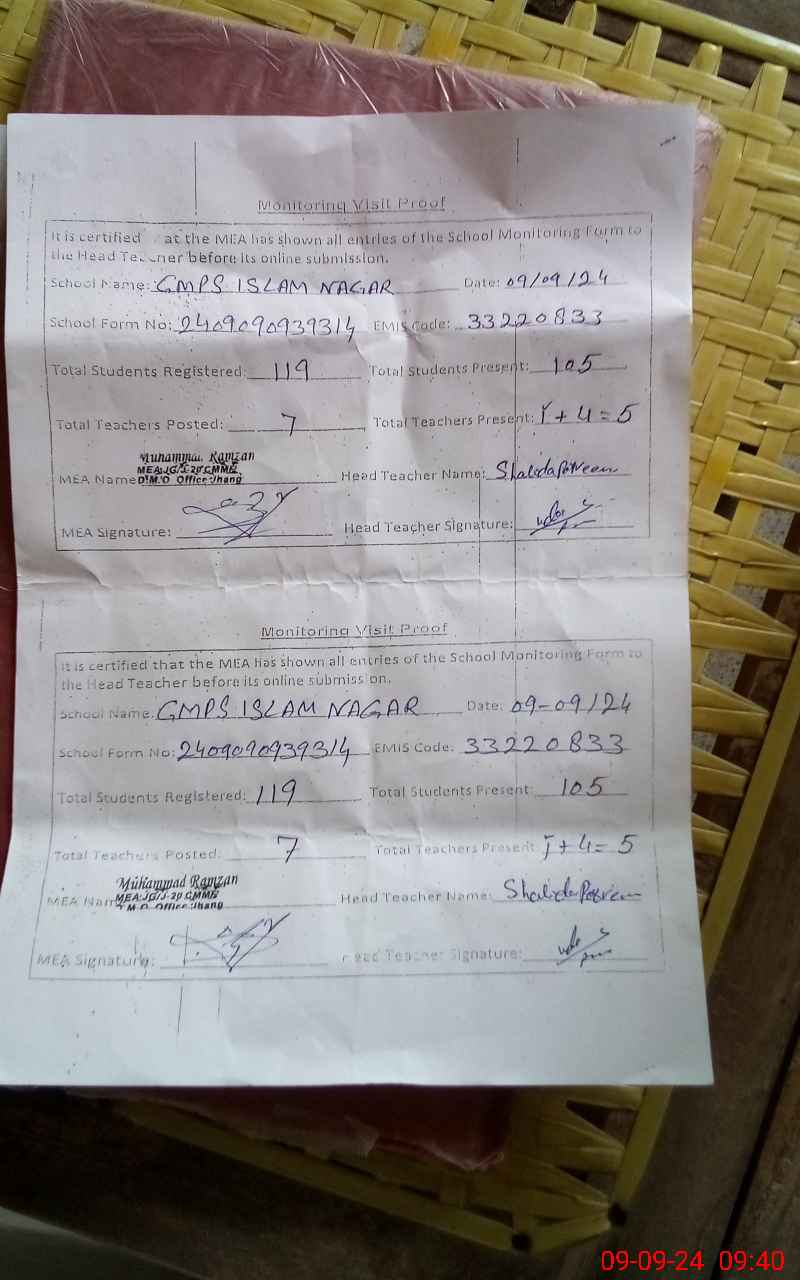 Monitoring Visit Proof
It is certified at the MEA has shown all entries of the School Monitoring Form to
the Head Teacher before its online submission.
School Name: GMPS ISLAM NAGAR Date: 09/09/24
School Form No: 240909093931/4 EMIS Code: 33220833
Total Students Registered: 119 Total Students Present: 105
Total Teachers Posted: 7 Total Teachers Present: 1+4=5
Muhammad Ramzan
MEA
D.M.O Office Jhang
MEA Name Head Teacher Name: Shahida Parveen
MEA Signature: Head Teacher Signature:
Monitoring Visit Proof
It is certified that the MEA has shown all entries of the School Monitoring Form to
the Head Teacher before its online submission.
School Name: GMPS ISLAM NAGAR Date: 09-09/24
School Form No: 240909093931/4 EMIS Code: 33220833
Total Students Registered: 119 Total Students Present: 105
Total Teachers Posted: 7 Total Teachers Present 1+4=5
Muhammad Ramzan
MEA
Office Jhang
MEA Name Head Teacher Name: Shahida Parveen
MEA Signature: Head Teacher Signature:
09-09-24 09:40